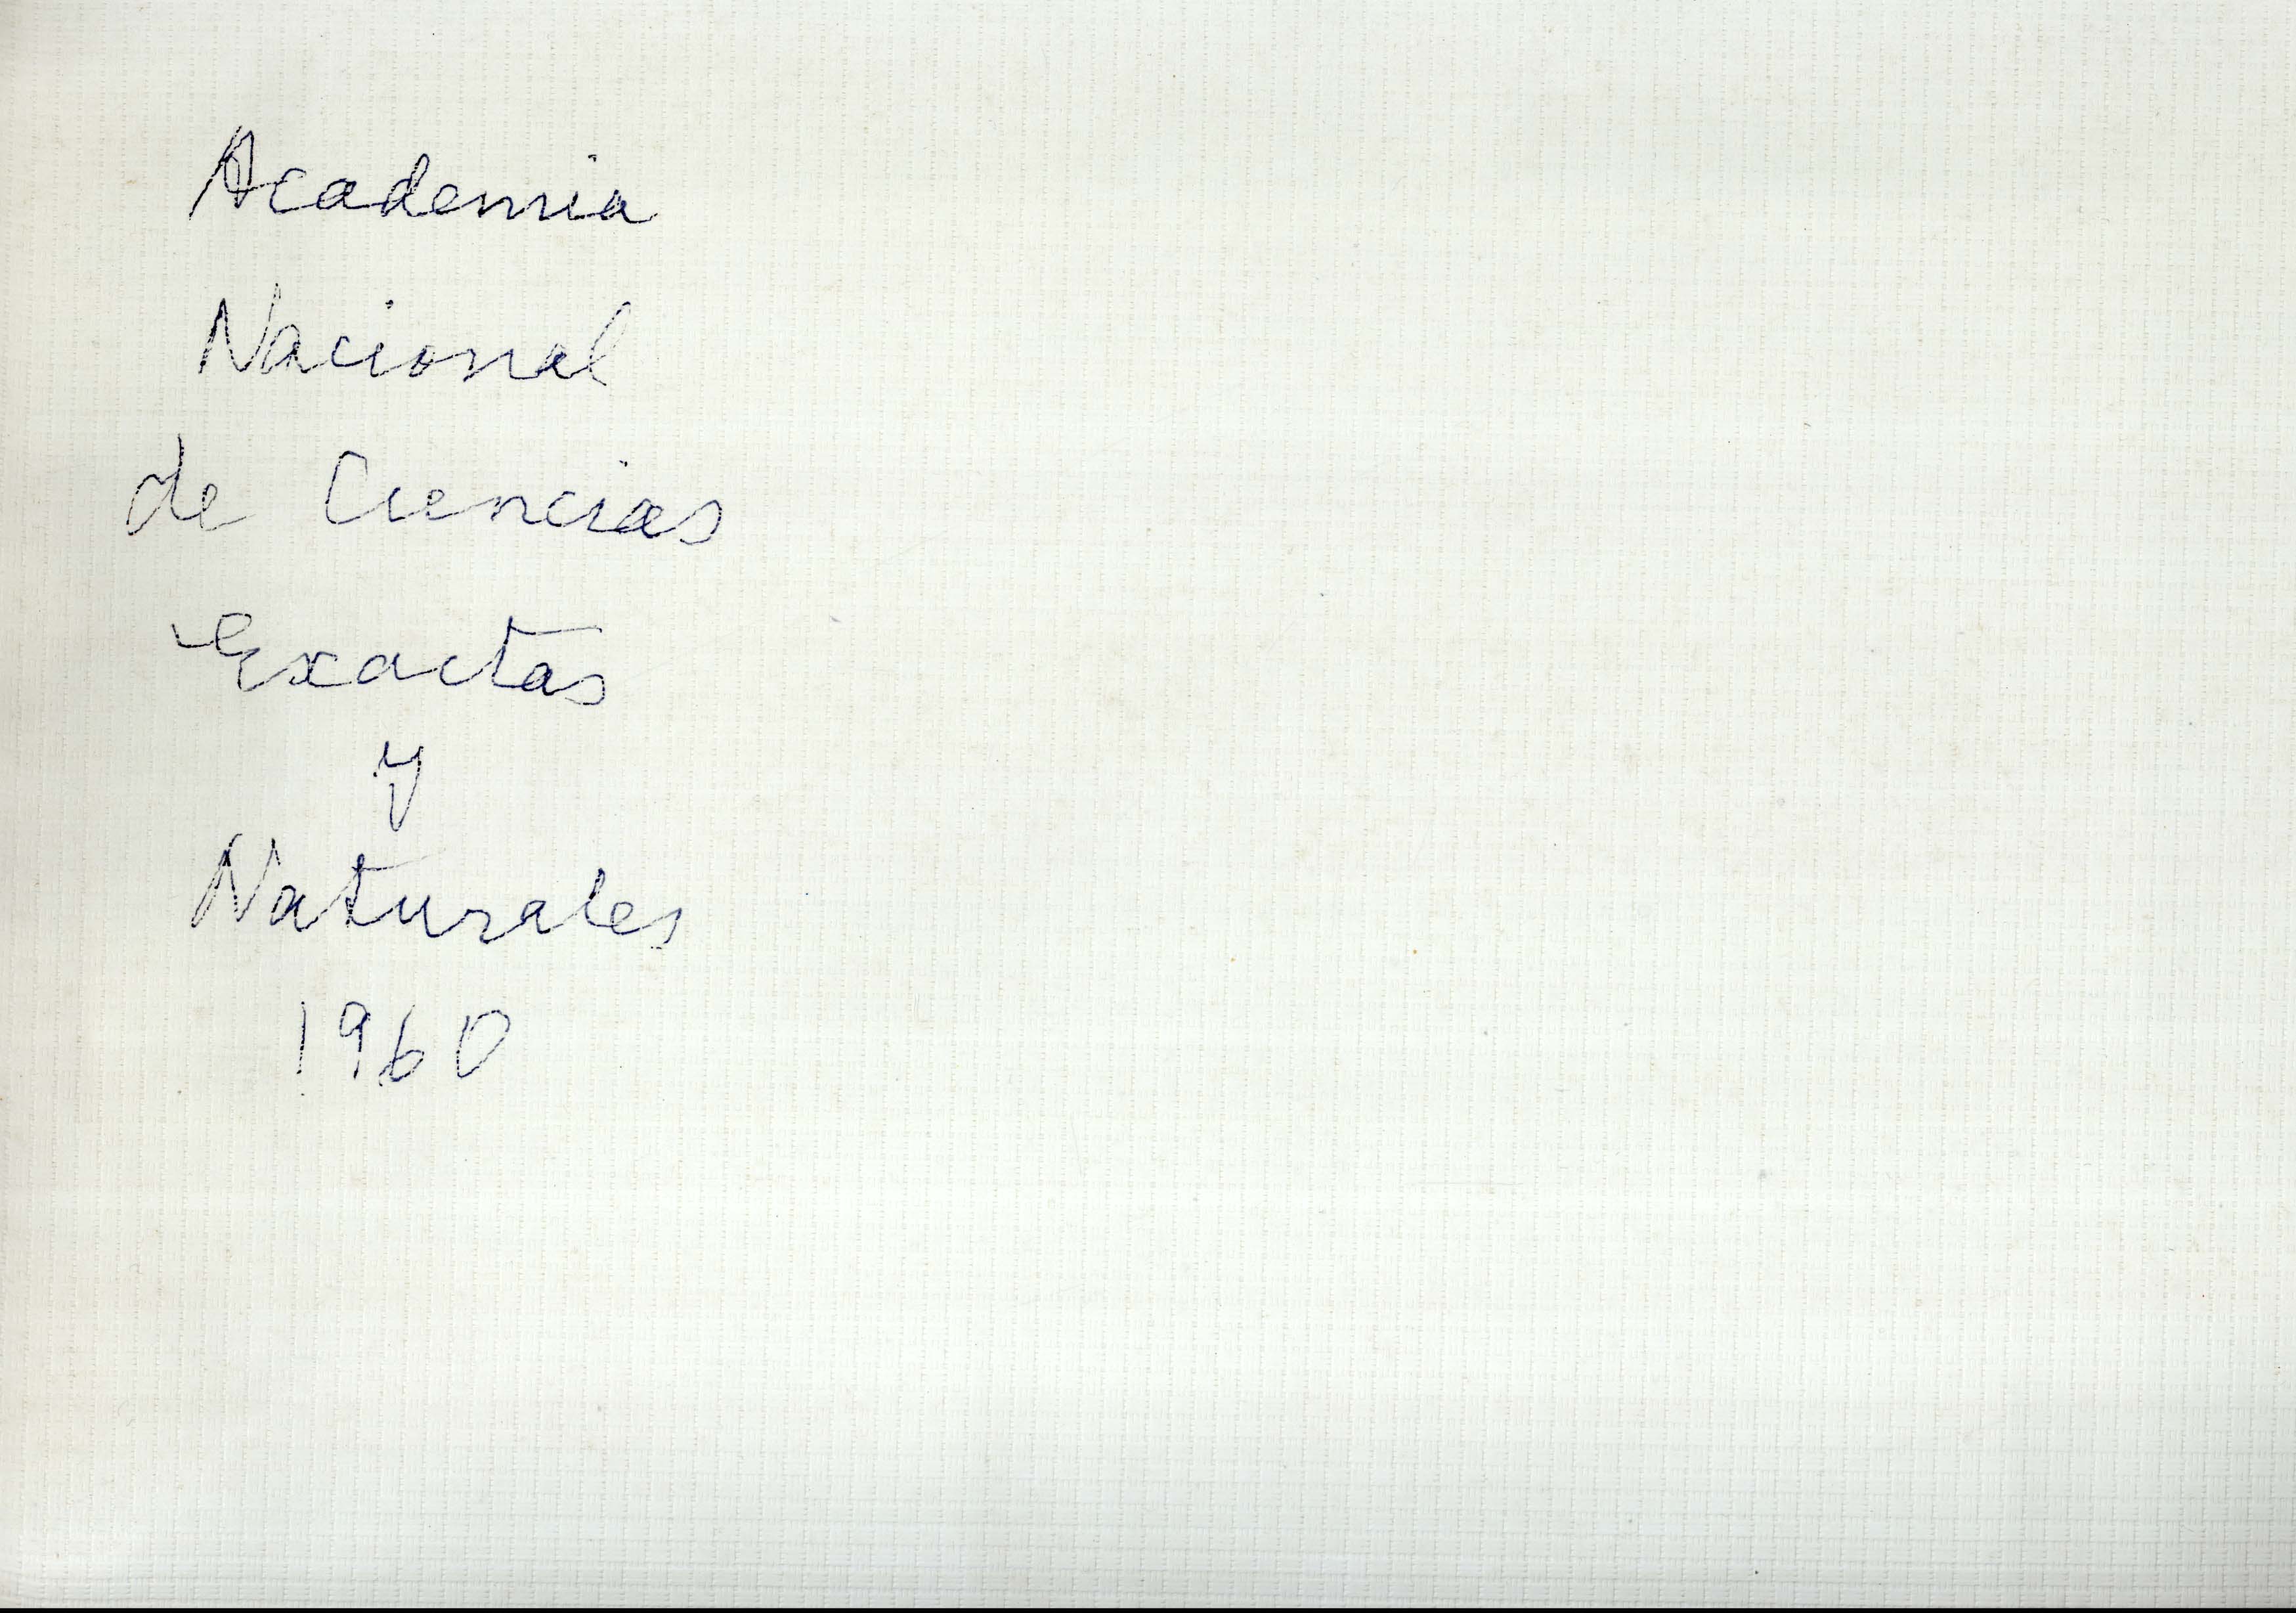 Academia
Nacional
de Ciencias
Exactas
y
Naturales
1960